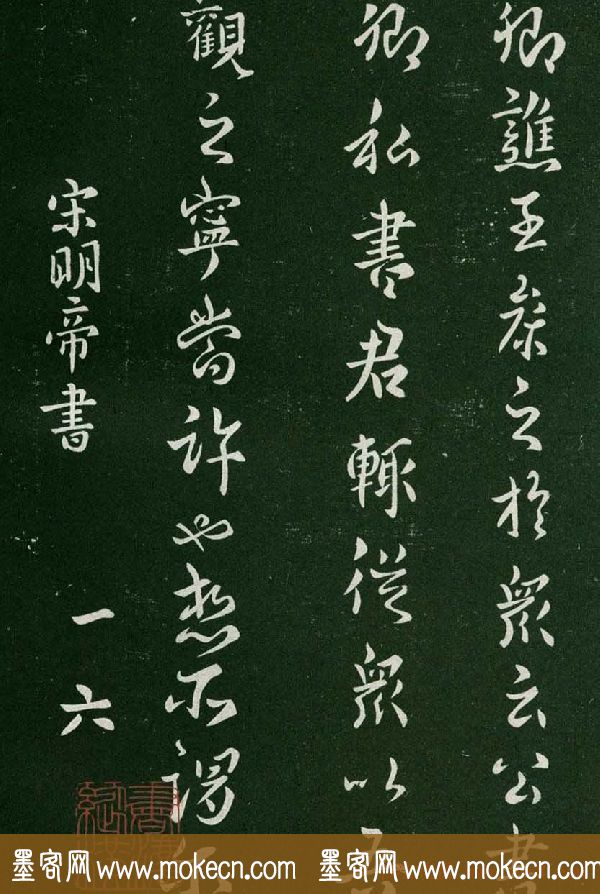 卿譙王衆之於衆云公書
卿私書君輒從衆以
觀之寧當許也想不謂
宋明帝書
一六
墨客网 www.mokecn.com 墨客网 www.mokecn.com